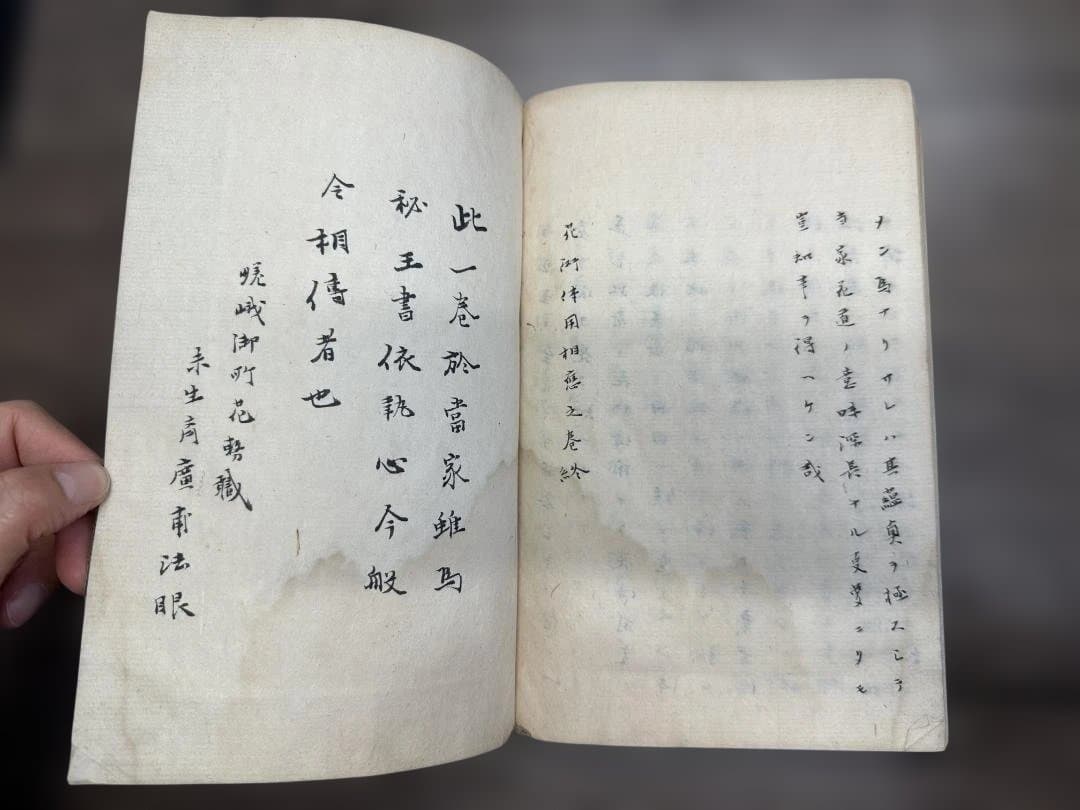 ナン為ナリサレハ其蘊奥ヲ極スシテ
花道ノ意味深長ナル夢ニタモ
豈知事ヲ得ヘケン哉
花術体用相應之巻終
此一巻於當家雖為
秘王書依執心今般
令相傳者也
嵯峨御所花務職
未生斎廣甫法眼